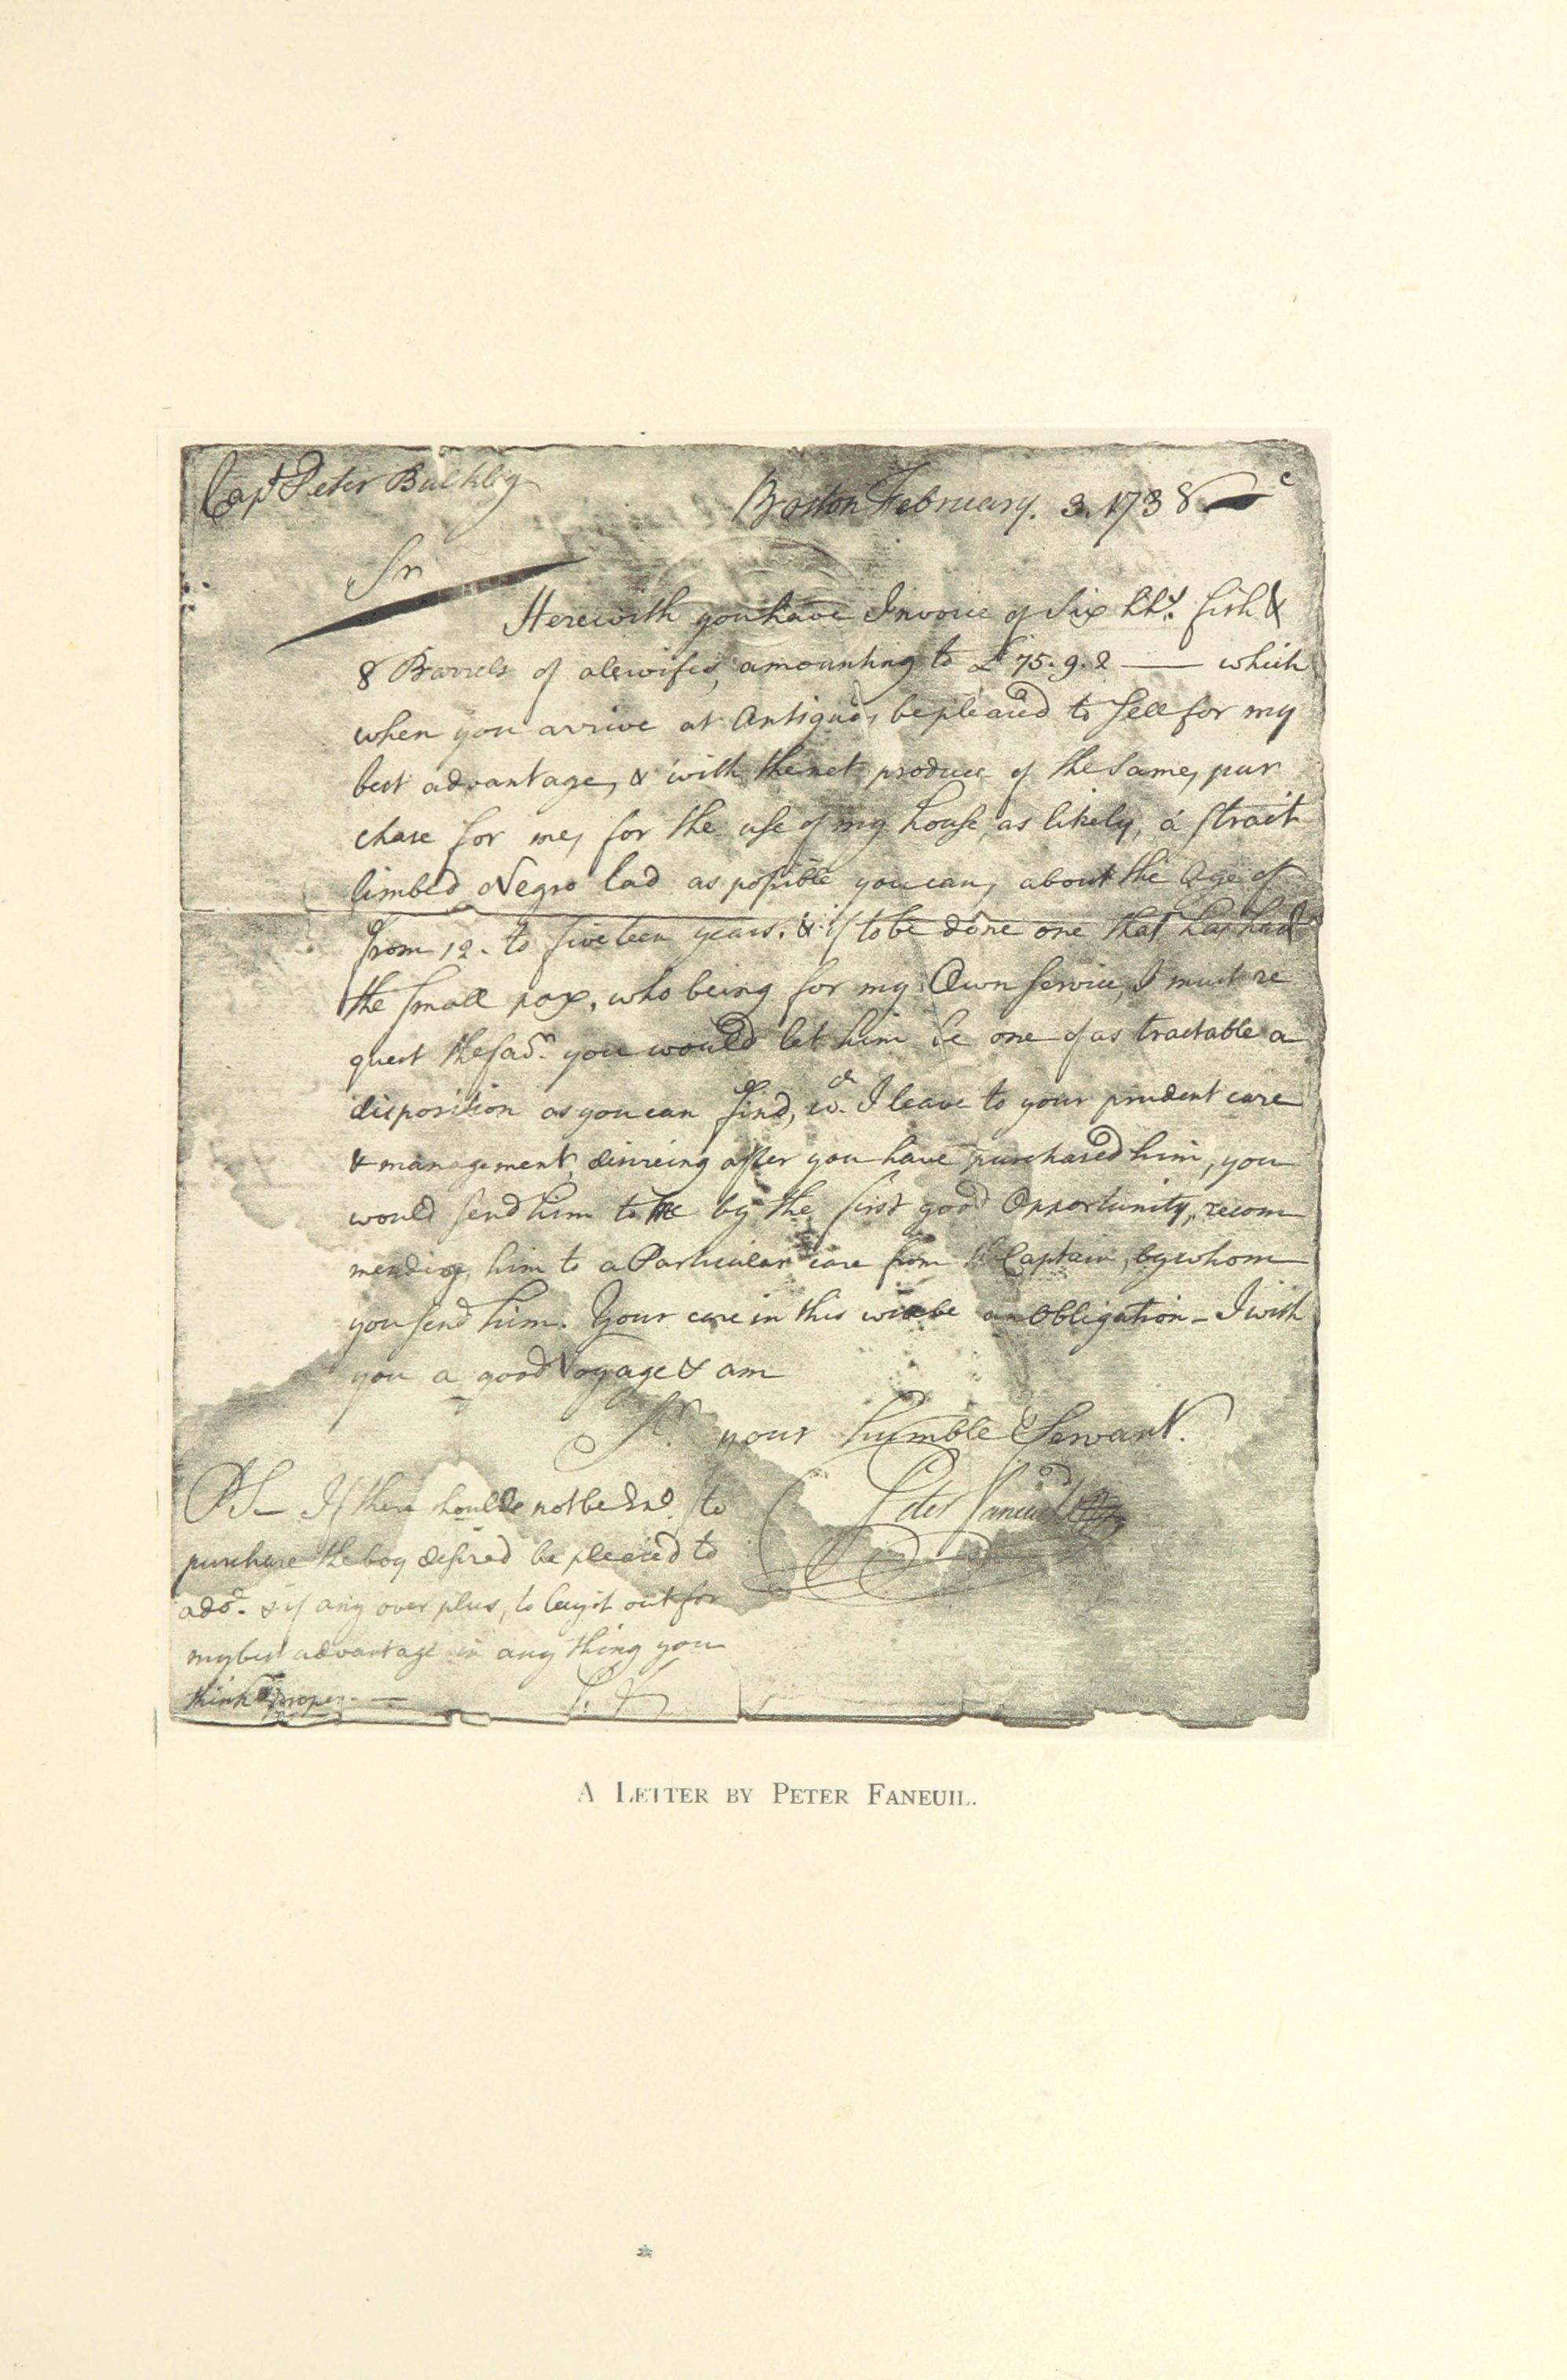 Capt Peter Bulkley
Boston February. 3. 1738
Sr
Herewith you have Invoice of Six hhds. fish &
8 Barrels of alewifes, amounting to £75.9.2 — which
when you arrive at Antigua, be pleased to Sell for my
best advantage, & with the net produce of the Same, pur
chase for me, for the use of my house, as likely, a strait
limbed Negro lad as possible you can, about the Age of
from 12. to fiveteen years. & if to be done one that has had
the small pox, who being for my Own service, I must re
quest the fav.r you would let him be one of as tractable a
disposition as you can find, w.ch I leave to your prudent care
& management, desireing after you have purchased him, you
would send him to me by the first good Opportunity, recom
mending him to a Particular care from the Captain, by whom
you send him. Your care in this will be an Obligation - I wish
you a good Voyage & am
Sr. your humble Servant.
Peter Faneuil
PS — If there should not be to
purchase the boy desired be pleased to
add. & if any over plus, to lay it out for
my best advantage in any thing you
think proper. — P. F.
A LETTER BY PETER FANEUIL.